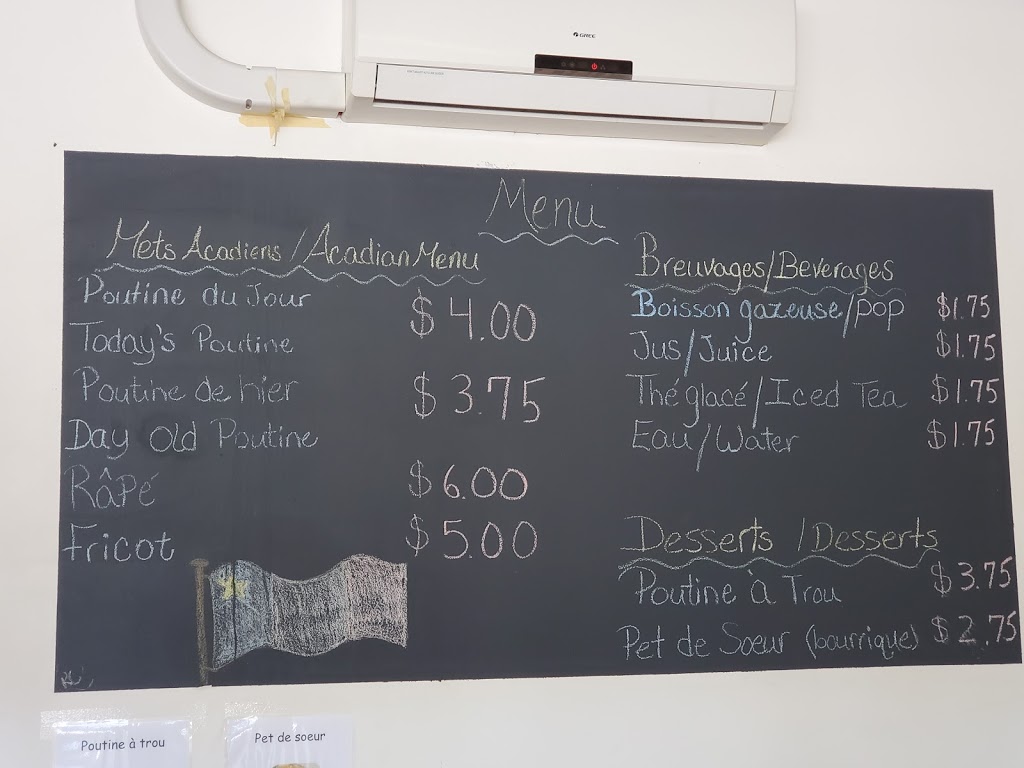 GREE
Menu
Mets Acadiens / Acadian Menu
Poutine du Jour
Today's Poutine
$4.00
Poutine de hier
Day Old Poutine
$3.75
Râpé $6.00
Fricot $5.00
Breuvages/Beverages
Boisson gazeuse/pop $1.75
Jus/Juice $1.75
Thé glacé/Iced Tea $1.75
Eau/Water $1.75
Desserts / Desserts
Poutine à Trou $3.75
Pet de Soeur (bourrique) $2.75
Poutine à trou
Pet de soeur